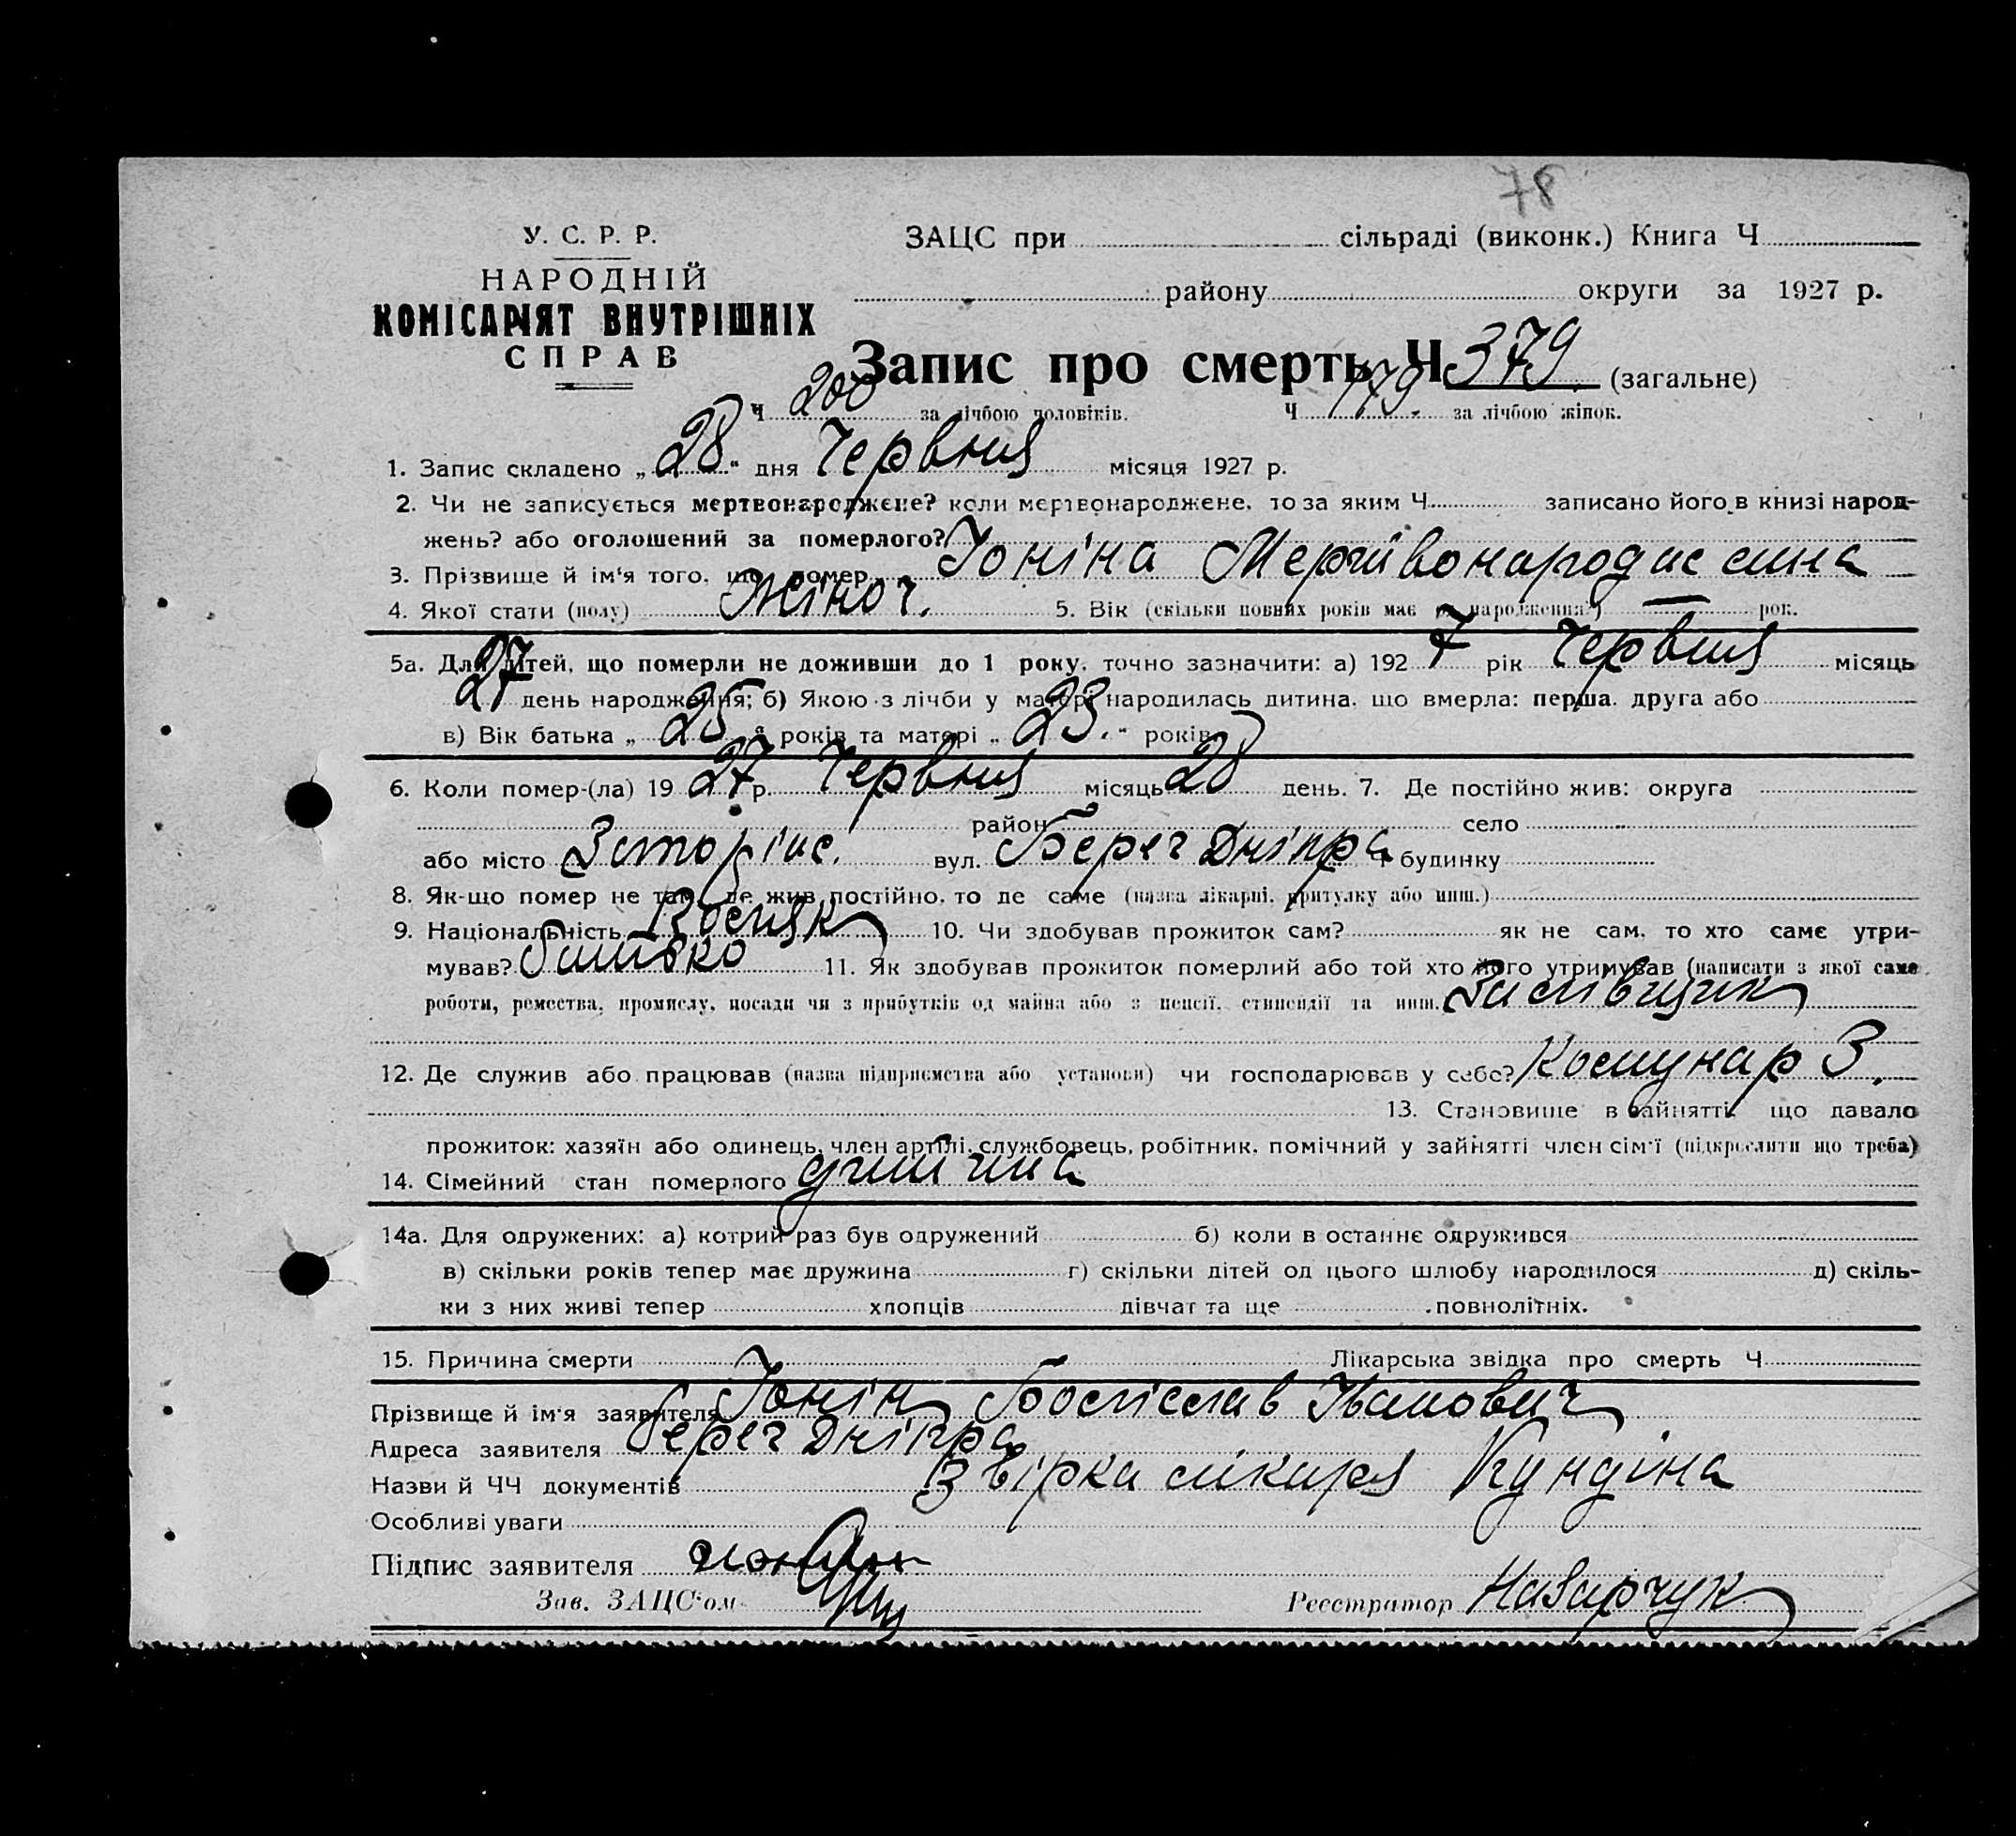 78
У. С. Р. Р.
НАРОДНІЙ
КОМІСАРІЯТ ВНУТРІШНІХ
СПРАВ
ЗАЦС при сільраді (виконк.) Книга Ч
району округи за 1927 р.
Запис про смерть Ч 379. (загальне)
Ч 200 за лічбою чоловіків. Ч 179. за лічбою жінок.
1. Запис складено „28“ дня Червня місяця 1927 р.
2. Чи не записується мертвонароджене? коли мертвонароджене, то за яким Ч записано його в книзі народ-
жень? або оголошений за померлого?
3. Прізвище й ім'я того, що помер Іоніна Мертвонароджена
4. Якої стати (полу) Жіноч. 5. Вік (скільки повних років має від народження?) — рок.
5а. Для дітей, що померли не доживши до 1 року, точно зазначити: а) 1927 рік Червня місяць
27 день народження; б) Якою з лічби у матері народилась дитина, що вмерла: перша, друга або
в) Вік батька „25“ років та матері „23.“ років
6. Коли помер-(ла) 1927 р. Червня місяць 28 день. 7. Де постійно жив: округа
район село
або місто вул. Берег Дніпра Ч будинку
8. Як-що помер не там, де жив постійно, то де саме (назва лікарні, притулку або инш.)
9. Національність 10. Чи здобував прожиток сам? як не сам, то хто саме утри-
мував? Батько 11. Як здобував прожиток померлий або той хто його утримував (написати з якої саме
роботи, ремества, промислу, посади чи з прибутків од майна або з пенсії, стипендії та инш.
12. Де служив або працював (назва підприємства або установи) чи господарював у себе? Комунар З.
13. Становище в зайнятті, що давало
прожиток: хазяїн або одинець, член артілі, службовець, робітник, помічний у зайнятті член сім'ї (підкреслити що треба)
14. Сімейний стан померлого дитина
14а. Для одружених: а) котрий раз був одружений б) коли в останнє одружився
в) скільки років тепер має дружина г) скільки дітей од цього шлюбу народилося д) скіль-
ки з них живі тепер хлопців дівчат та ще повнолітніх.
15. Причина смерти Лікарська звідка про смерть Ч
Прізвище й ім'я заявителя Іонін Іванович
Адреса заявителя берег Дніпра
Назви й ЧЧ документів лікаря Кундіна
Особливі уваги
Підпис заявителя
Зав. ЗАЦС'ом Реєстратор Назарчук